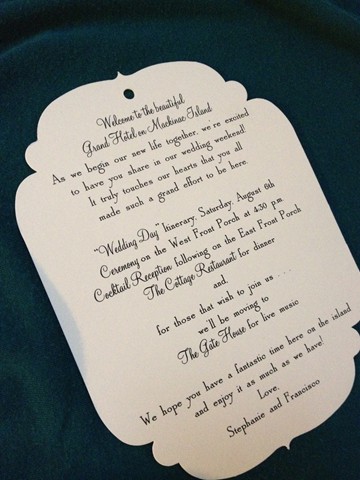 Welcome to the beautiful
Grand Hotel on Mackinac Island
As we begin our new life together, we're excited
to have you share in our wedding weekend!
It truly touches our hearts that you all
made such a grand effort to be here.
"Wedding Day" Itinerary, Saturday, August 6th
Ceremony on the West Front Porch at 4:30 p.m.
Cocktail Reception following on the East Front Porch
The Cottage Restaurant for dinner
and,
for those that wish to join us . . . .
we'll be moving to
The Gate House for live music
We hope you have a fantastic time here on the island
and enjoy it as much as we have!
Love,
Stephanie and Francisco